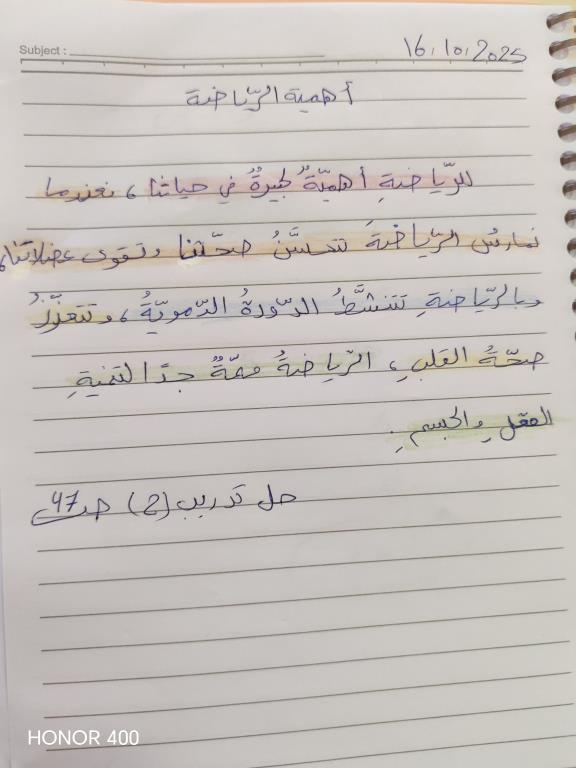 Subject :
16.10.2025
أهمية الرّياضة
للرّياضةِ أهميّةٌ كبيرةٌ في حياتنا، فعندما
نمارسُ الرّياضةَ تتحسَّنُ صحّتنا وتقوى عضلاتنا،
وبالرّياضةِ تتنشَّطُ الدّورةُ الدّمويّةُ، وتتعزَّزُ
صحّةُ القلبِ، الرّياضةُ مهمّةٌ جدًا لتنميةِ
العقلِ والجسمِ.
حل تدريب (2) صد 47
HONOR 400